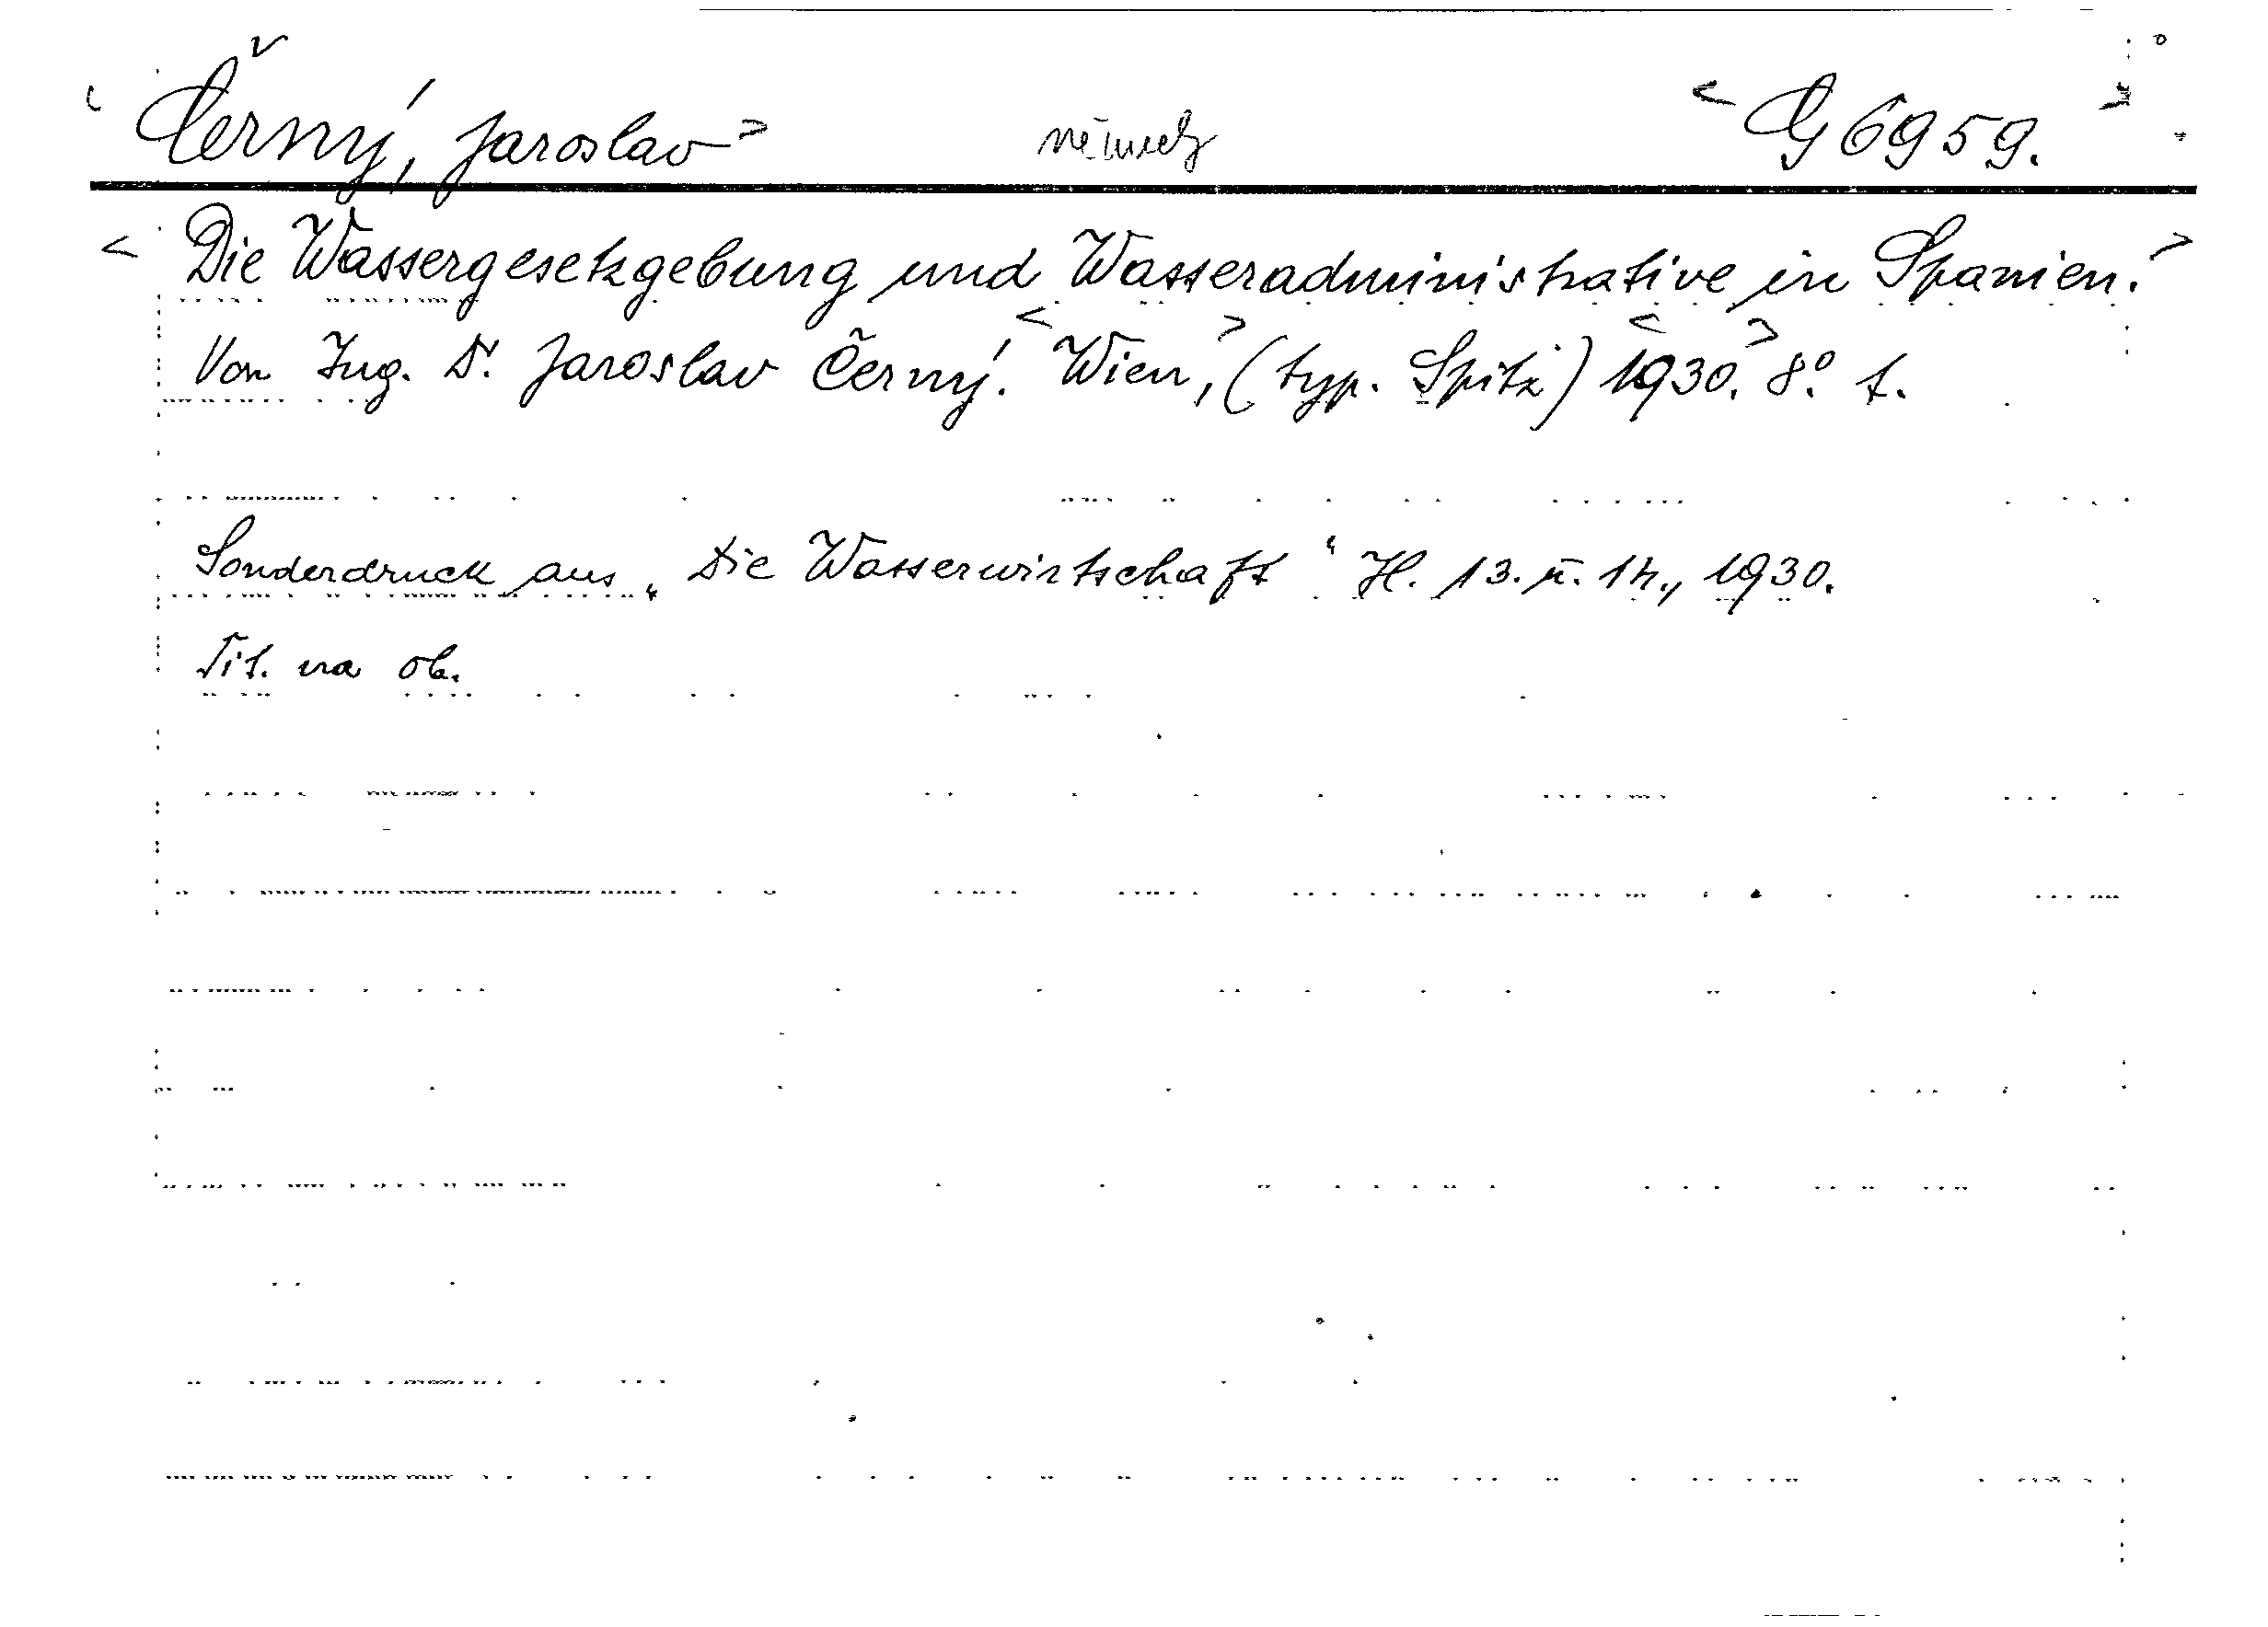 <Černý, Jaroslav> německy <G 6959.>
<Die Wassergesetzgebung und Wasseradministrative in Spanien.>
Von Ing. Dr. Jaroslav Černý. <Wien,> (typ. Spitz) <1930.> 8°. f.
Sonderdruck aus „Die Wasserwirtschaft“ H. 13. u. 14., 1930.
Tit. na ob.